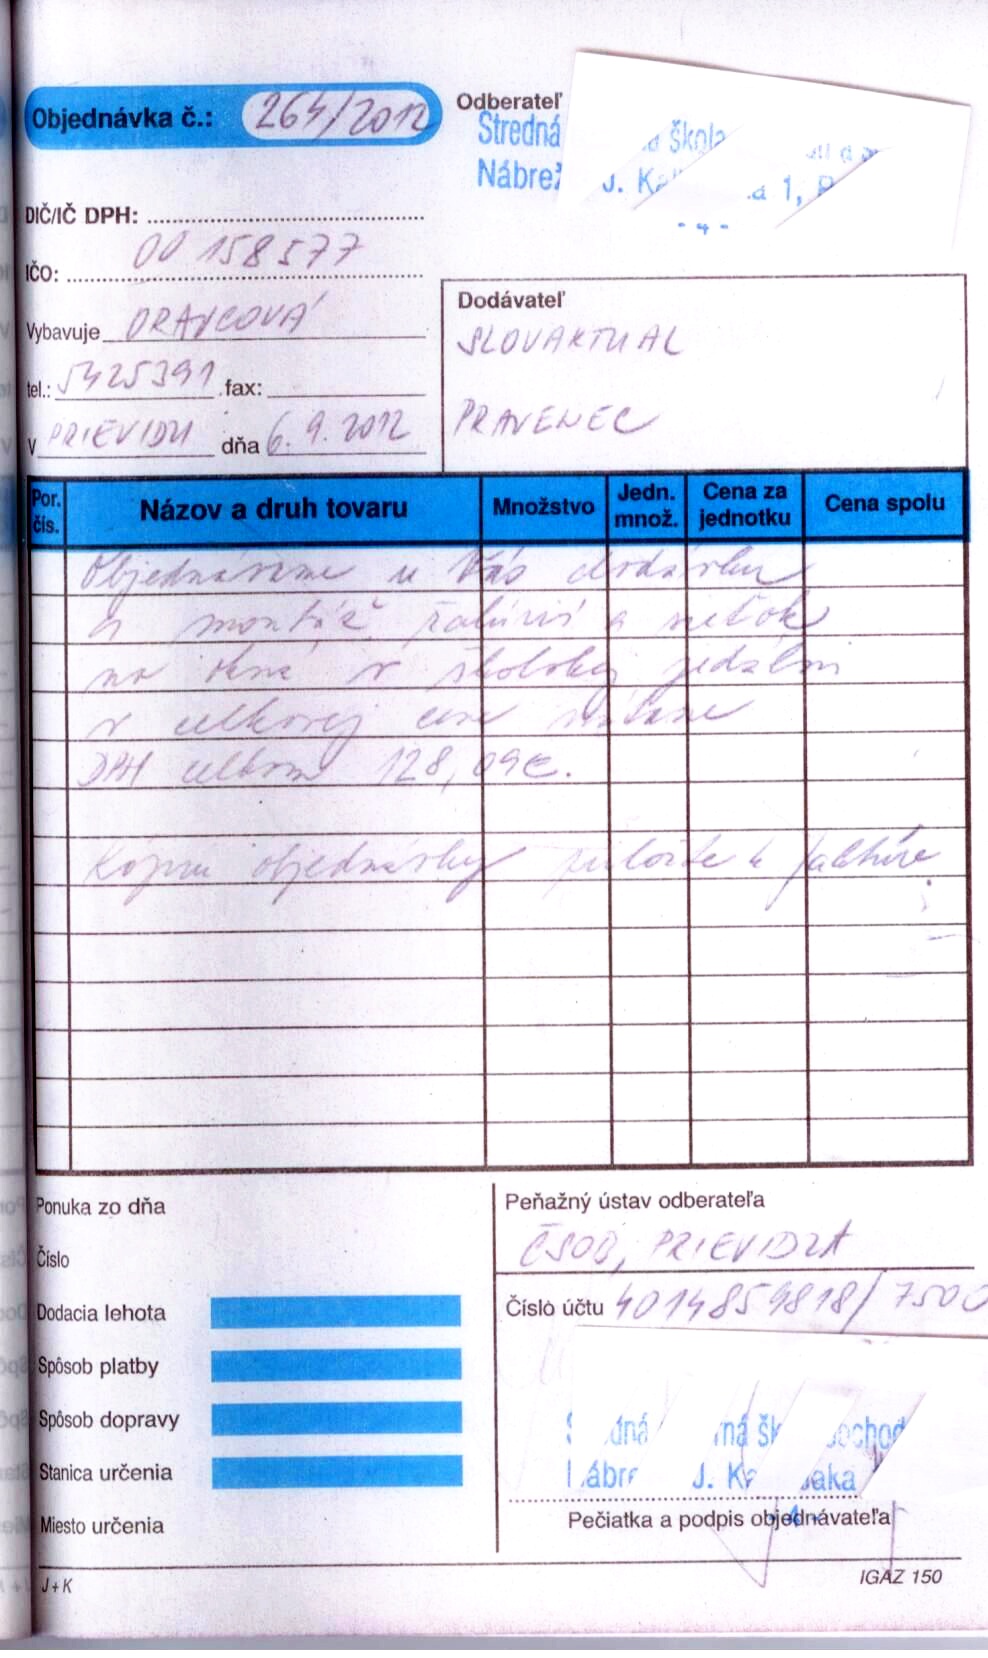 Objednávka č.: 264/2012
Odberateľ
Stredná škola
Nábrež J. Ka 1, P
- 4 -
DIČ/IČ DPH:
IČO: 00158577
Vybavuje DRAVCOVÁ
tel.: 5425391 fax:
V PRIEVIDZI dňa 6.9.2012
Dodávateľ
SLOVAKTUAL
PRAVENEC
Por. čís. Názov a druh tovaru Množstvo Jedn. množ. Cena za jednotku Cena spolu
Objednávame u Vás dodávku
a montáž žalúzií a sieťok
na okná v školskej jedálni
v celkovej cene vrátane
DPH celkom 128,09€.
Kópiu objednávky priložte k faktúre
Ponuka zo dňa
Číslo
Dodacia lehota
Spôsob platby
Spôsob dopravy
Stanica určenia
Miesto určenia
Peňažný ústav odberateľa
ČSOB, PRIEVIDZA
Číslo účtu 4014859818/7500
dná ná šk bchod
Nábre J. Ka aka
Pečiatka a podpis objednávateľa
J+K
IGAZ 150